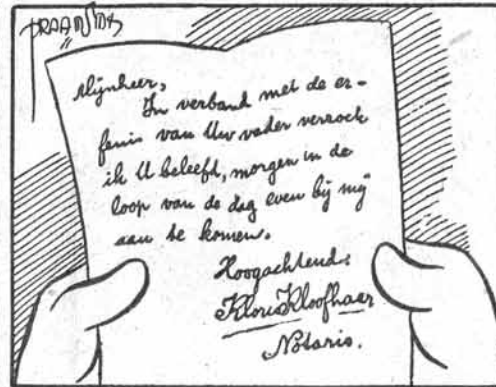 Mijnheer,
In verband met de er-
fenis van Uw vader verzoek
ik U beleefd, morgen in de
loop van de dag even bij mij
aan te komen.
Hoogachtend:
Kloris Kloofhaer
Notaris.